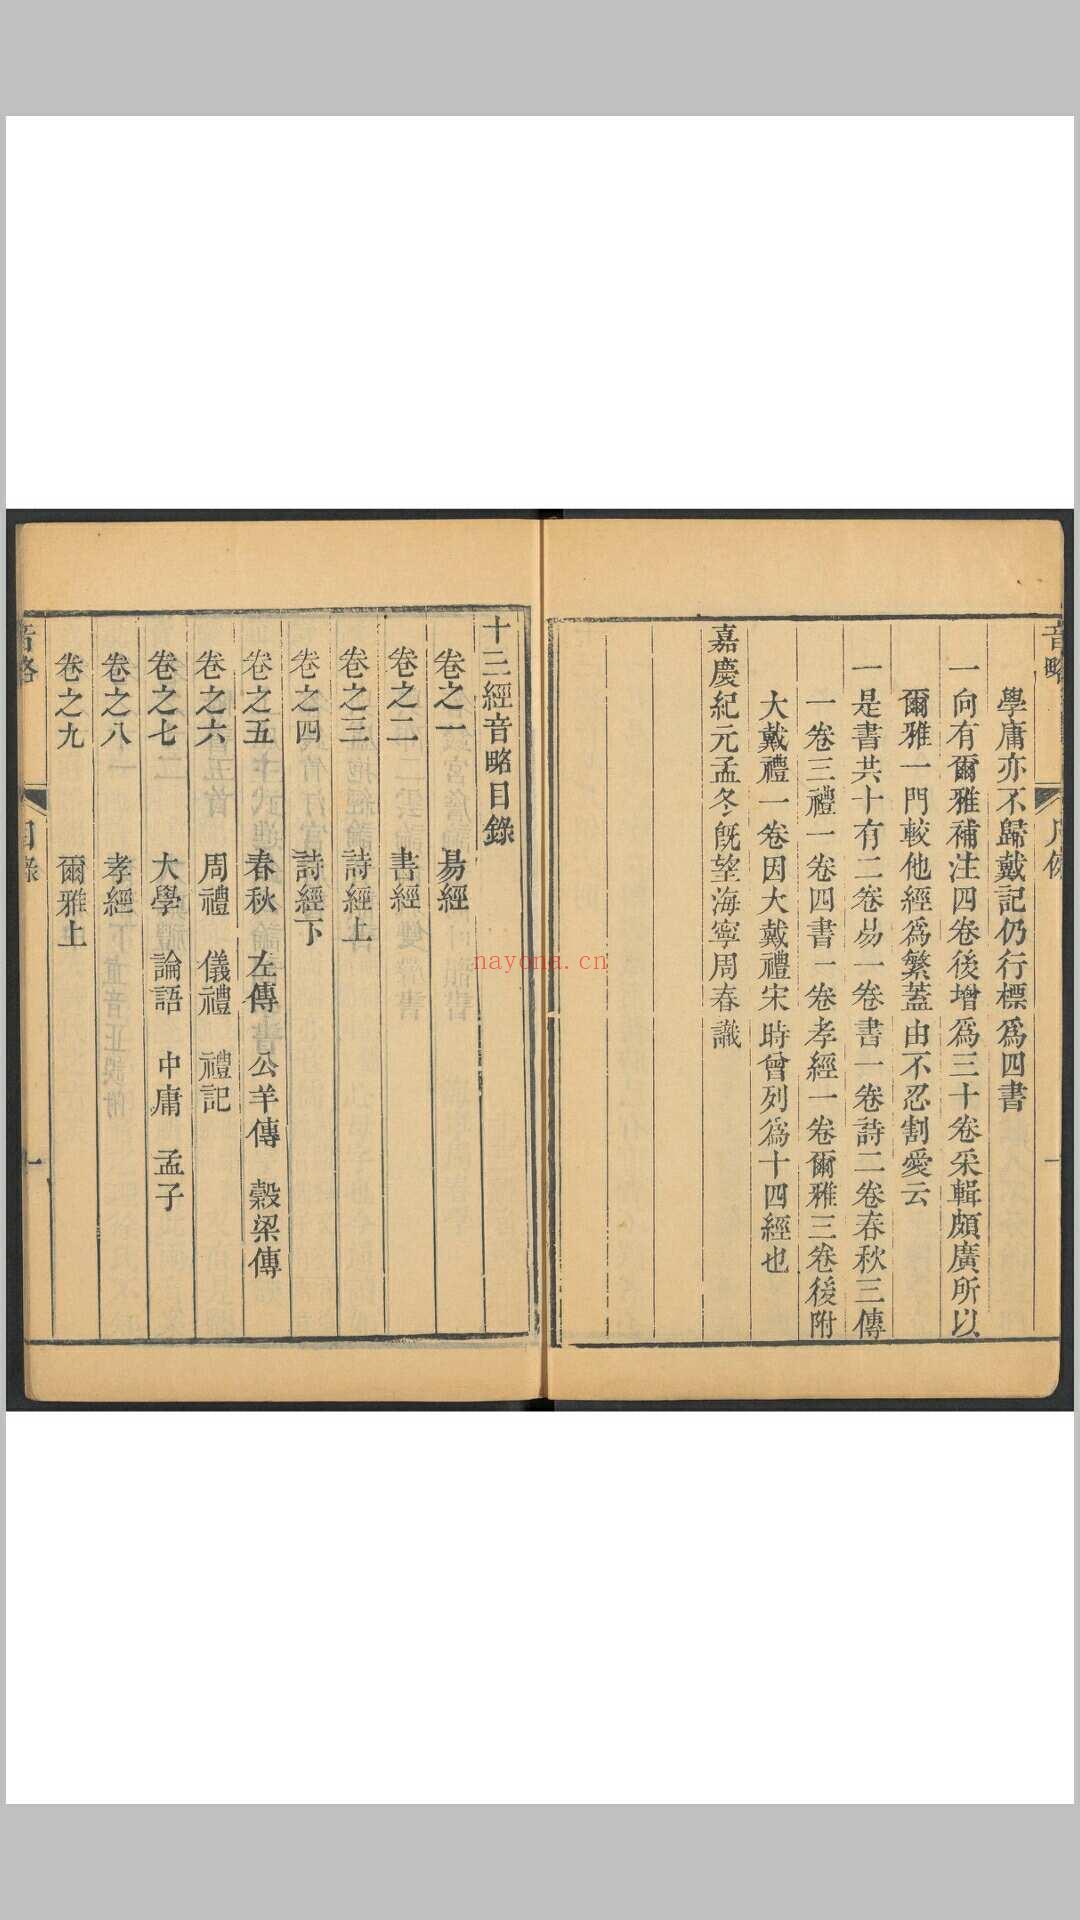 學庸亦不歸戴記仍行標爲四書
一向有爾雅補注四卷後增爲三十卷采輯頗廣所以
爾雅一門較他經爲繁蓋由不忍割愛云
一是書共十有二卷易一卷書一卷詩二卷春秋三傳
一卷三禮一卷四書一卷孝經一卷爾雅三卷後附
大戴禮一卷因大戴禮宋時曾列爲十四經也
嘉慶紀元孟冬旣望海寧周春識
十三經音略目錄
卷之一 易經
卷之二 書經
卷之三 詩經上
卷之四 詩經下
卷之五 春秋 左傳 公羊傳 穀梁傳
卷之六 周禮 儀禮 禮記
卷之七 大學 論語 中庸 孟子
卷之八 孝經
卷之九 爾雅上
音略 目錄 一
nayona.cn